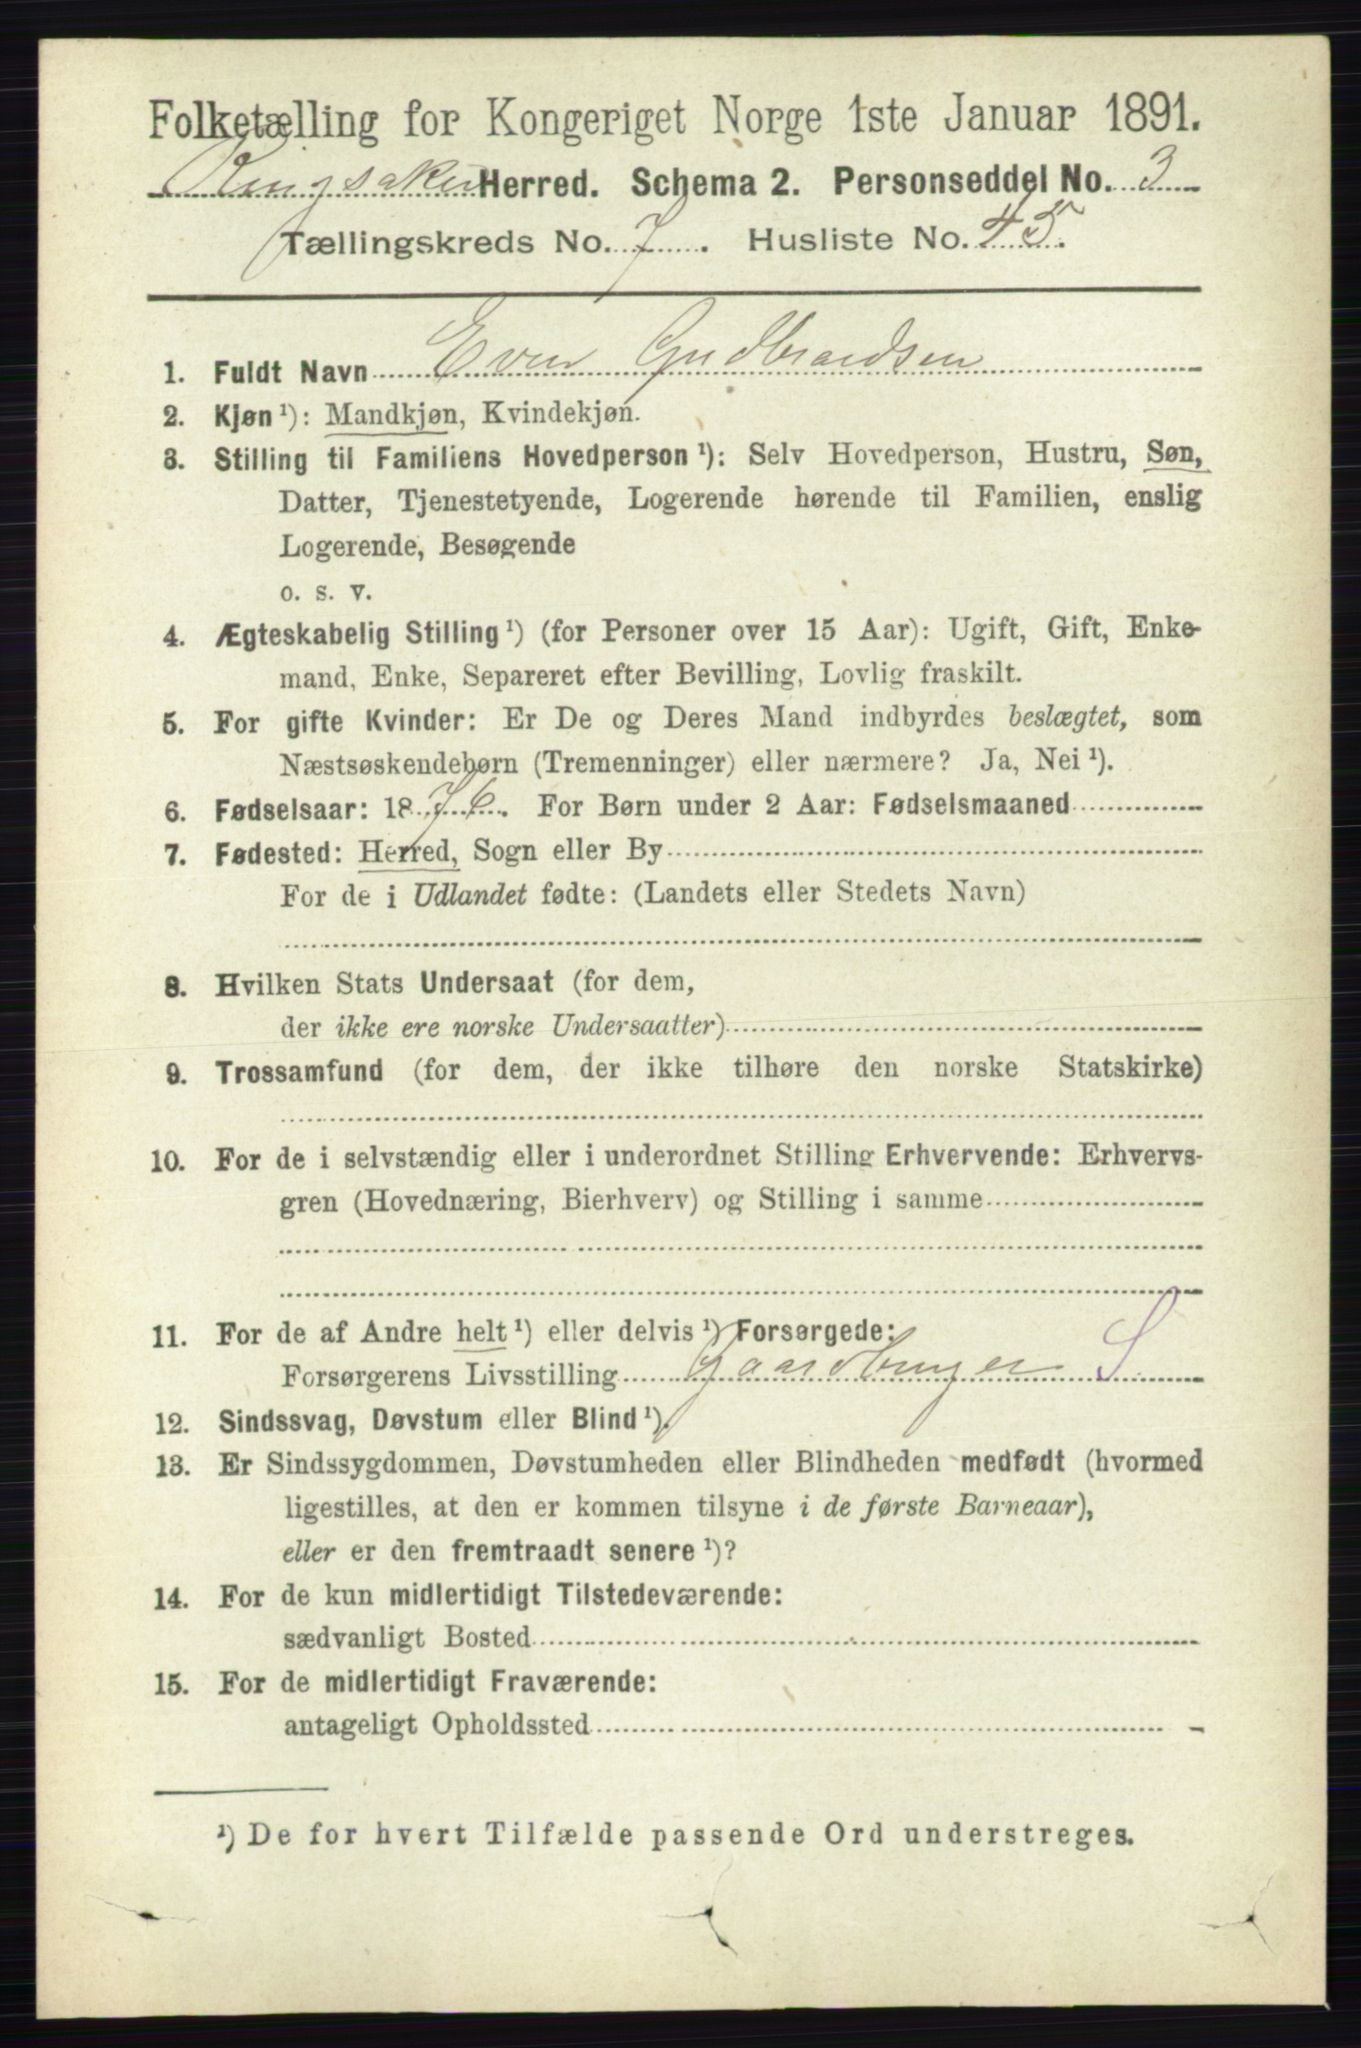 Folketælling for Kongeriget Norge 1ste Januar 1891.
Ringsaker Herred. Schema 2. Personseddel No. 3
Tællingskreds No. 7. Husliste No. 45.
1. Fuldt Navn Even Gudbrandsen
2. Kjøn ¹): Mandkjøn, Kvindekjøn.
3. Stilling til Familiens Hovedperson ¹): Selv Hovedperson, Hustru, Søn,
Datter, Tjenestetyende, Logerende hørende til Familien, enslig
Logerende, Besøgende
o. s. v.
4. Ægteskabelig Stilling ¹) (for Personer over 15 Aar): Ugift, Gift, Enke-
mand, Enke, Separeret efter Bevilling, Lovlig fraskilt.
5. For gifte Kvinder: Er De og Deres Mand indbyrdes beslægtet, som
Næstsøskendebørn (Tremenninger) eller nærmere? Ja, Nei ¹).
6. Fødselsaar: 1876. For Børn under 2 Aar: Fødselsmaaned
7. Fødested: Herred, Sogn eller By
For de i Udlandet fødte: (Landets eller Stedets Navn)
8. Hvilken Stats Undersaat (for dem,
der ikke ere norske Undersaatter)
9. Trossamfund (for dem, der ikke tilhøre den norske Statskirke)
10. For de i selvstændig eller i underordnet Stilling Erhvervende: Erhvervs-
gren (Hovednæring, Bierhverv) og Stilling i samme
11. For de af Andre helt ¹) eller delvis ¹) Forsørgede:
Forsørgerens Livsstilling Gaardbruger S
12. Sindssvag, Døvstum eller Blind ¹).
13. Er Sindssygdommen, Døvstumheden eller Blindheden medfødt (hvormed
ligestilles, at den er kommen tilsyne i de første Barneaar),
eller er den fremtraadt senere ¹)?
14. For de kun midlertidigt Tilstedeværende:
sædvanligt Bosted
15. For de midlertidigt Fraværende:
antageligt Opholdssted
¹) De for hvert Tilfælde passende Ord understreges.